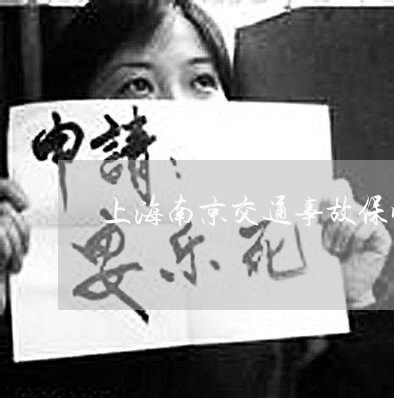 申請：
上海南京交通事故保
乐死